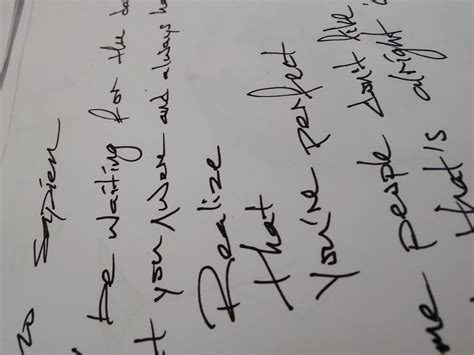 Sapien
be waiting for the
you were and always ha
Realize
that
you're perfect
me people don't like
that's alright